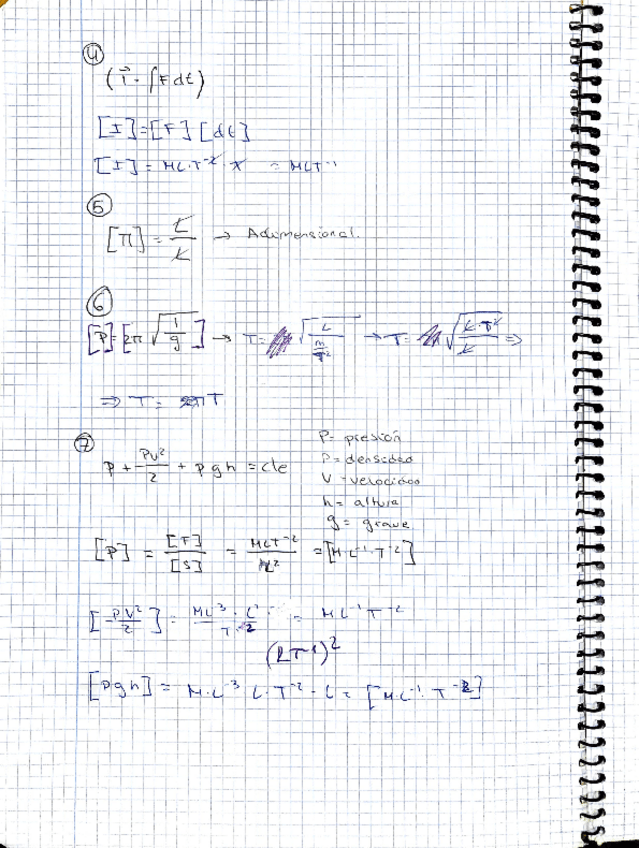 4
(I⃗ = ∫F dt)
[I] = [F] [dt]
[I] = MLT⁻² · T = MLT⁻¹
5
[π] = L/L → Adimensional.
6
[P] = [2π √(l/g)] → T = √(L/(m/T²)) → T = √(L·T²/L) ⇒
⇒ T = T
7
P + ρv²/2 + ρgh = cte
P = presión
ρ = densidad
V = velocidad
h = altura
g = grave
[P] = [F]/[S] = MLT⁻²/L² = [M·L⁻¹·T⁻²]
[ρv²/2] = = ML⁻¹T⁻²
(LT⁻¹)²
[ρgh] = M·L⁻³ L·T⁻² · L = [M·L⁻¹·T⁻²]